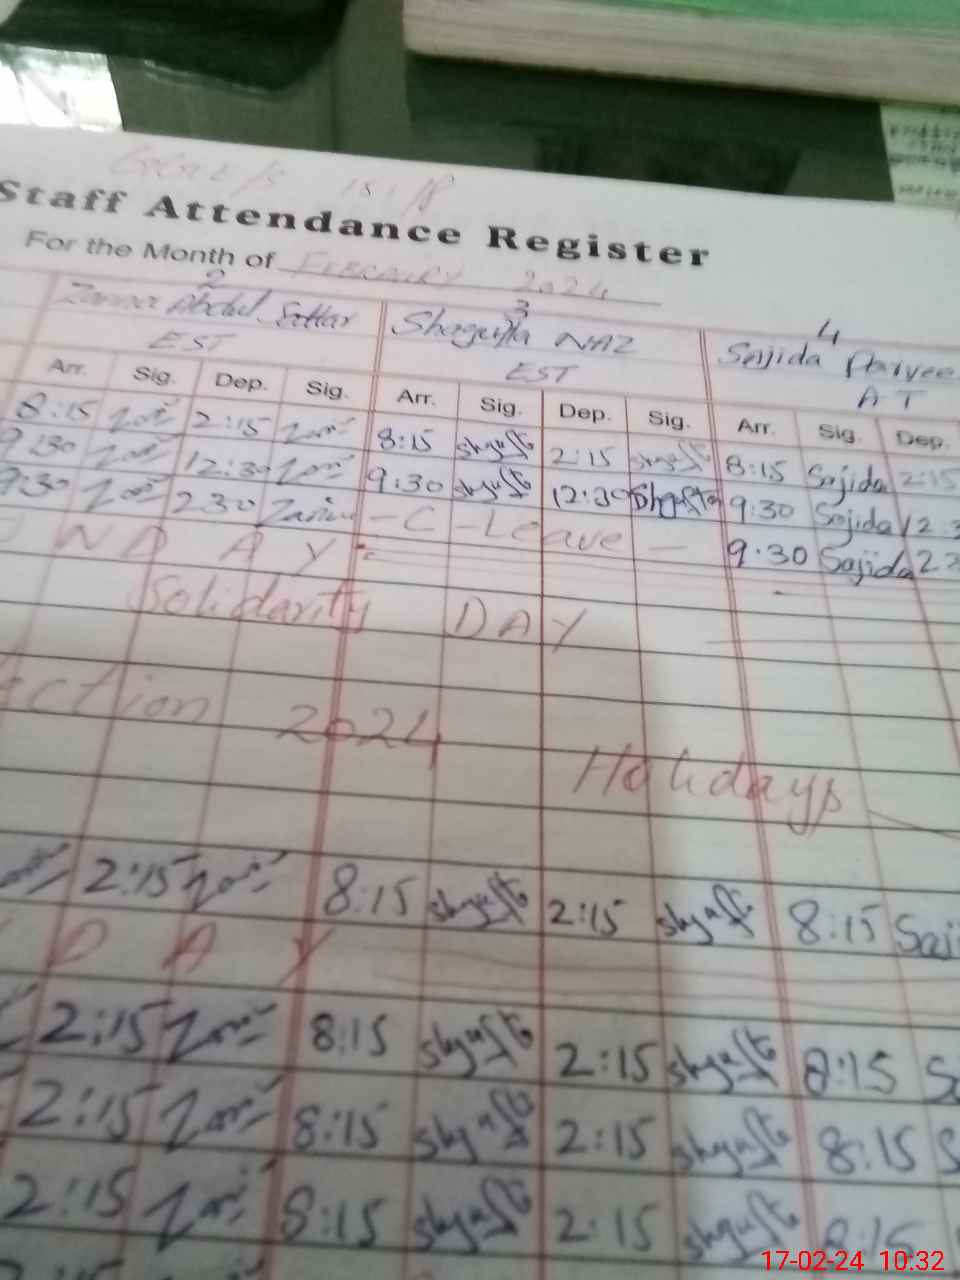 Staff Attendance Register
For the Month of February 2024
2 3 4
Zarina Abdul Sattar Shagufta NAZ Sajida
EST EST AT
Arr. Sig. Dep. Sig. Arr. Sig. Dep. Sig. Arr. Sig. Dep.
8:15 2:15 8:15 shgufta 2:15 shgufta 8:15 Sajida 2:15
9:30 12:30 9:30 shgufta 12:30 Shgufta 9:30 Sajida 12:3
9:30 2:30 Zarina -C-Leave- 9:30 Sajida 2:3
UNDAY
Solidarity DAY
ection 2024 Holidays
2:15 8:15 shgufta 2:15 shgufta 8:15 Saji
DAY
2:15 8:15 shgufta 2:15 shgufta 8:15 Sa
2:15 8:15 shgufta 2:15 shgufta 8:15 S
2:15 8:15 shgufta 2:15 shgufta 8:15
17-02-24 10:32